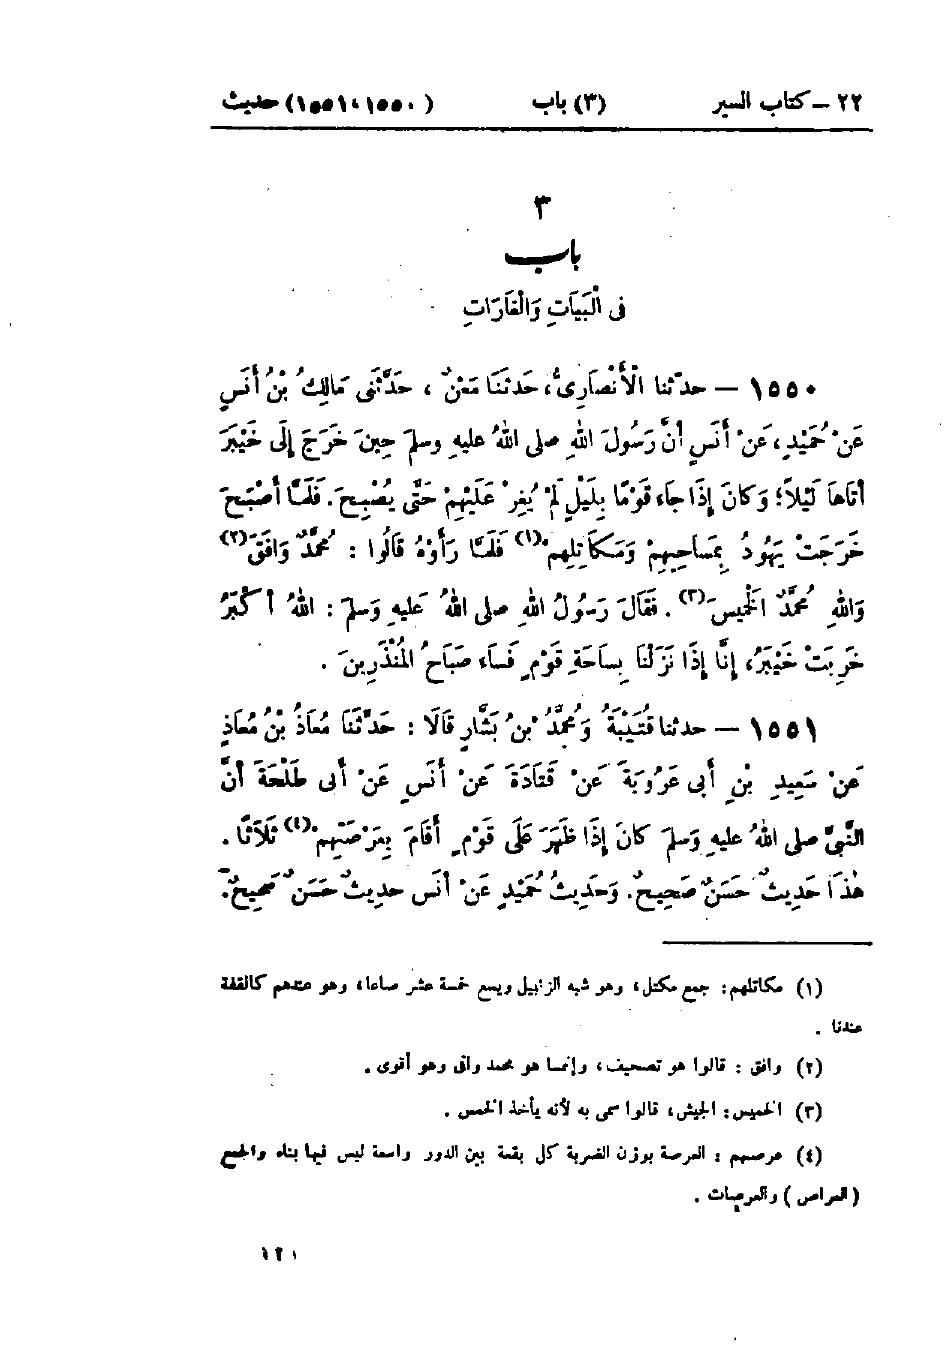 ٢٢ – كتاب السير (٣) باب (١٥٥٠، ١٥٥١) حديث
٣
باب
فى الْبَيَاتِ وَالْغَارَاتِ
١٥٥٠ — حدّثنا الْأَنْصَارِىُّ، حَدثنَا مَعْنٌ، حَدَّثَنِى مَالِكُ بْنُ أَنَسٍ
عَنْ حُمَيْدٍ، عَنْ أَنَسٍ أنَّ رَسُولَ اللهِ صلى اللهُ عليهِ وسلمَ حِينَ خَرَجَ إلَى خَيْبَرَ
أتَاهَا لَيْلاً؛ وَكَانَ إذَا جَاءَ قَوْمًا بِلَيْلٍ لَمْ يُغِرْ عَلَيْهِمْ حَتَّى يُصْبِحَ. فَلَمَّا أصْبَحَ
خَرَجَتْ يَهُودُ بِمَسَاحِيهِمْ وَمَكَاتِلِهِمْ(١) فَلَمَّا رَأَوْهُ قَالُوا : مُحمَّدٌ وَافَقَ(٢)
وَاللهِ مُحمَّدٌ الْخَمِيسَ(٣). فَقَالَ رَسُولُ اللهِ صلى اللهُ عَليهِ وَسلمَ : اللهُ أكْبَرُ
خَرِبَتْ خَيْبَرُ، إنَّا إذَا نَزَلْنَا بِسَاحَةِ قَوْمٍ فَسَاء صَبَاحُ المُنْذَرِينَ .
١٥٥١ — حدثنا قُتَيْبَةُ وَمُحمَّدُ بْنُ بَشَّارٍ قَالَا : حَدَّثَنَا مُعَاذُ بْنُ مُعَاذٍ
عَنْ سَعِيدِ بْنِ أبِى عَرُوبَةَ عَنْ قَتَادَةَ عَنْ أَنَسٍ عَنْ أَبى طَلْحَةَ أنَّ
النَّبِىَّ صلى اللهُ عليهِ وَسلمَ كانَ إذَا ظَهَرَ عَلَى قَوْمٍ أقَامَ بِعَرْصَتِهِمْ(٤) ثَلَاثًا .
هٰذَا حَدِيثٌ حَسَنٌ صَحِيحٌ. وَحَدِيثُ حُمَيْدٍ عَنْ أنَس حديثٌ حَسَنٌ صَحِيحٌ.
(١) مكاتلهم : جمع مكتل، وهو شبه الزنبيل ويسع خمسة عشر صاعا، وهو عندهم كالقفة
عندنا .
(٢) وافق : قالوا هو تصحيف، وإنما هو محمد وافى وهو أقوى .
(٣) الخميس : الجيش، قالوا سمى به لأنه يأخذ الخمس .
(٤) عرصتهم : العرصة بوزن الضربة كل بقعة بين الدور واسعة ليس فيها بناء والجمع
(العراص) والعرصات .
١٢١